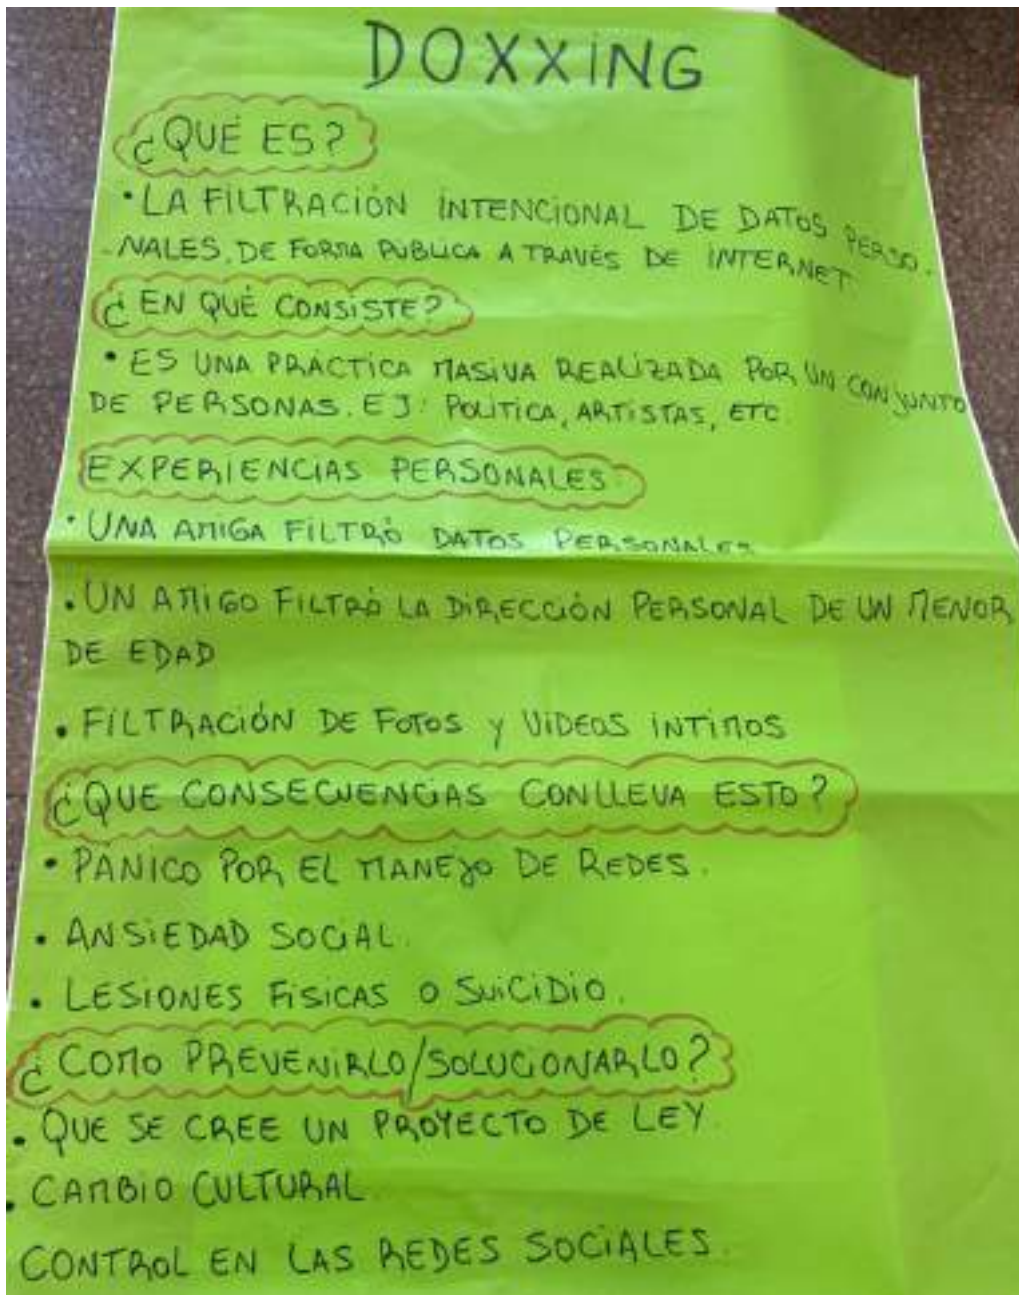 DOXXING
¿QUÉ ES?
• LA FILTRACIÓN INTENCIONAL DE DATOS PERSO-
-NALES, DE FORMA PUBLICA A TRAVÉS DE INTERNET.
¿EN QUÉ CONSISTE?
• ES UNA PRÁCTICA MASIVA REALIZADA POR UN CONJUNTO
DE PERSONAS. EJ: POLITICA, ARTISTAS, ETC
EXPERIENCIAS PERSONALES:
• UNA AMIGA FILTRÓ DATOS PERSONALES
• UN AMIGO FILTRÓ LA DIRECCIÓN PERSONAL DE UN MENOR
DE EDAD
• FILTRACIÓN DE FOTOS Y VIDEOS INTIMOS
¿QUE CONSECUENCIAS CONLLEVA ESTO?
• PÁNICO POR EL MANEJO DE REDES.
• ANSIEDAD SOCIAL.
• LESIONES FÍSICAS O SUICIDIO.
¿COMO PREVENIRLO/SOLUCIONARLO?
• QUE SE CREE UN PROYECTO DE LEY.
• CAMBIO CULTURAL.
CONTROL EN LAS REDES SOCIALES.